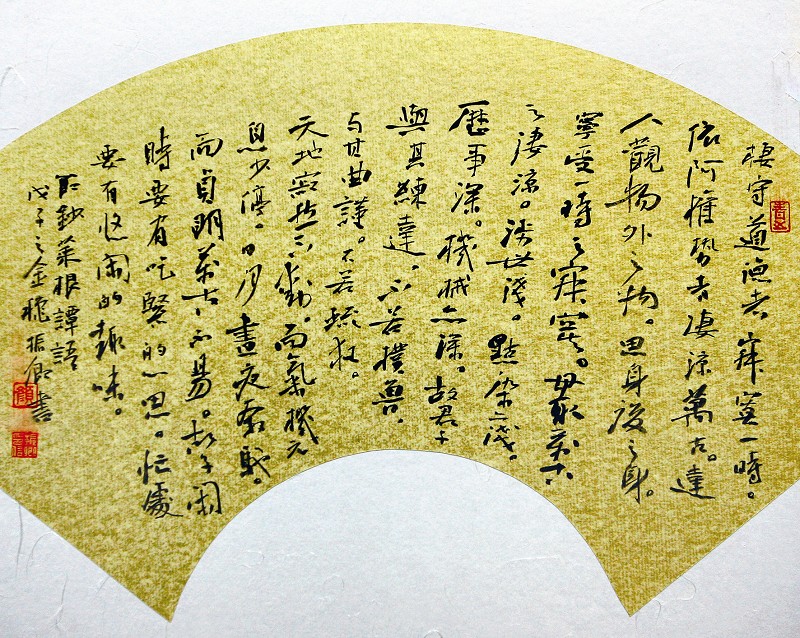 棲守道德者寂寞一時。
依阿權勢者淒涼萬古。達
人觀物外之物。思身後之身。
寧受一時之寂寞。毋取萬古
之淒涼。涉世淺。點染亦淺。
歷事深。機械亦深。故君子
與其練達，不若樸魯。
與其曲謹。不若疏狂。
天地寂然不動。而氣機无
息少停。日月晝夜奔馳。
而貞明萬古不易。故君子閒
時要有吃緊的心思。忙處
要有悠閒的趣味。
右鈔菜根譚語
戊子之金穐振卿書